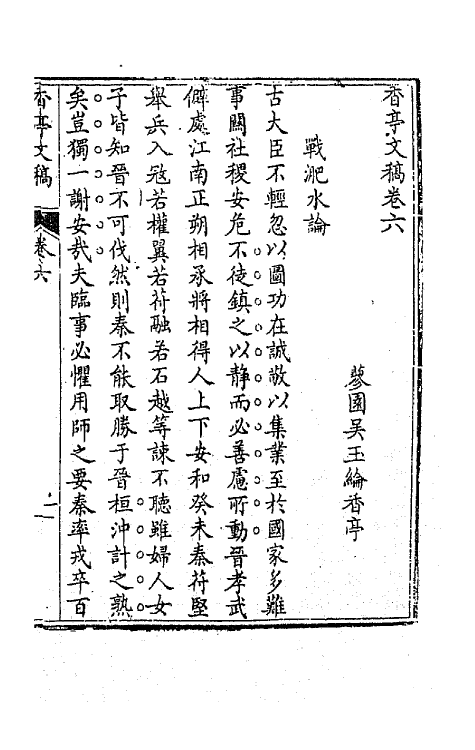 香亭文稿卷六
蓼園吳玉綸香亭
戰淝水論
古大臣不輕忽以圖功在誠敬以集業至於國家多難
事關社稷安危不徒鎮之以靜而必善慮所動晉孝武
僻處江南正朔相承將相得人上下安和癸未秦苻堅
舉兵入寇若權翼若苻融若石越等諫不聽雖婦人女
子皆知晉不可伐然則秦不能取勝于晉桓沖計之熟
矣豈獨一謝安哉夫臨事必懼用師之要秦率戎卒百
香亭文稿
卷六
一